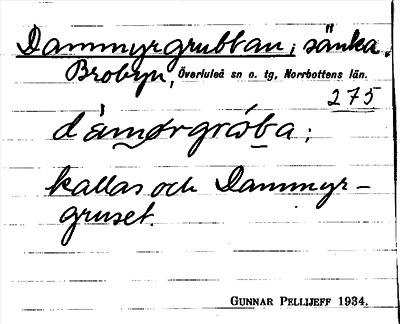 Dammyrgrubban; sänka.
Brobyn, Överluleå sn o. tg, Norrbottens län.
275
dàmørgróba;
kallas och Dammyr-
gruset.
GUNNAR PELLIJEFF 1934.